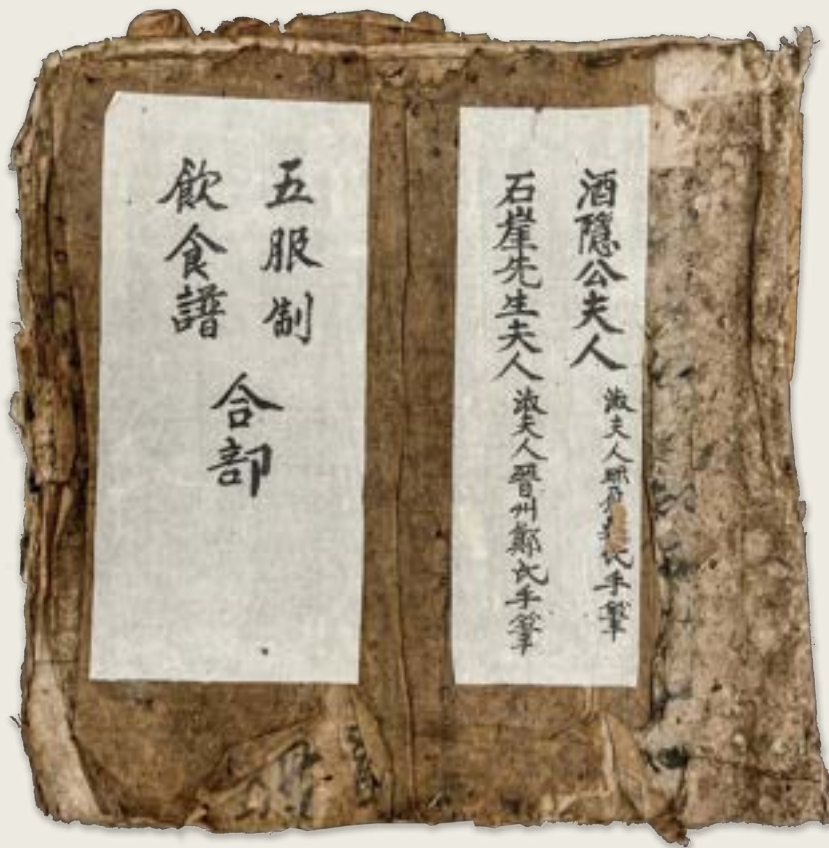 酒隱公夫人 淑夫人 氏手筆
石崖先生夫人 淑夫人晉州鄭氏手筆
五服制
飮食譜
合部